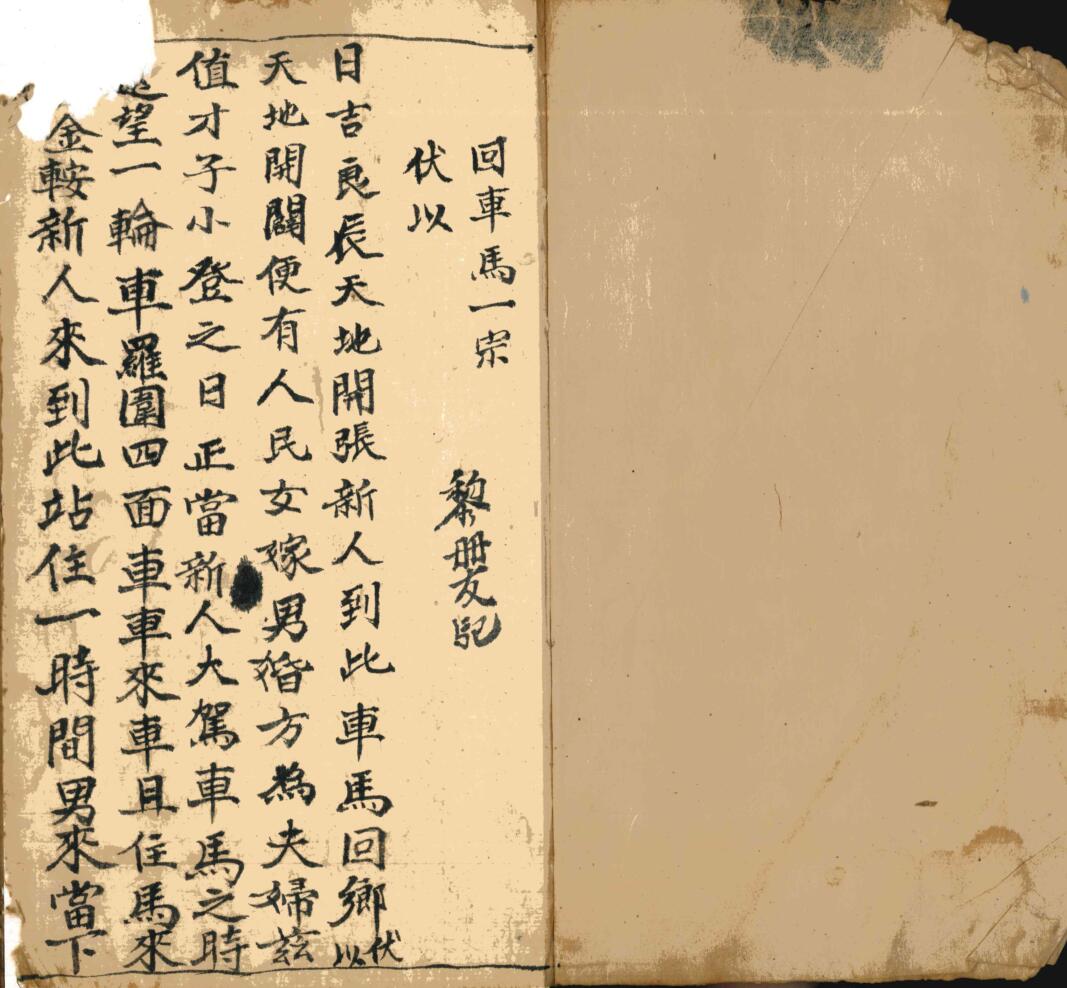 回車馬一宗
黎盟友記
伏以
日吉良辰天地開張新人到此車馬回鄉伏以
天地開闢便有人民女嫁男婚方為夫婦茲
值才子小登之日正當新人大駕車馬之時
望一輪車羅圍四面車車來車且住馬來
金鞍新人來到此站住一時間男來當下